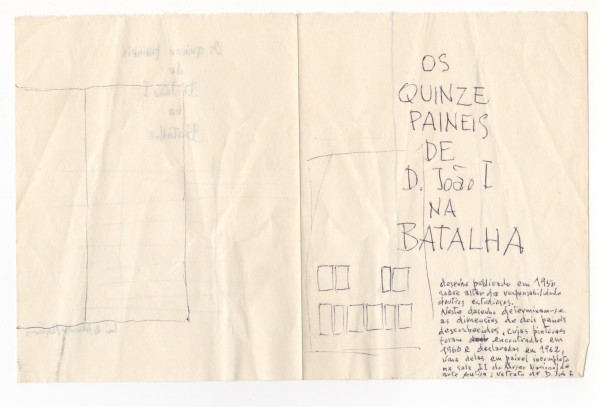 OS
QUINZE
PAINEIS
DE
D. João I
NA
BATALHA
desenho publicado em 1950
sobre altar da responsabilidade
doutros estudiosos.
Neste desenho determinam-se
as dimensões de dois paineis
desconhecidos, cujas pinturas
foram encontradas em
1960 e declaradas em 1962,
uma delas em painel incompleto
na sala II do Museu Nacional de
arte antiga: retrato de D. João I
Os quinze paineis
de
D. João I
na
Batalha